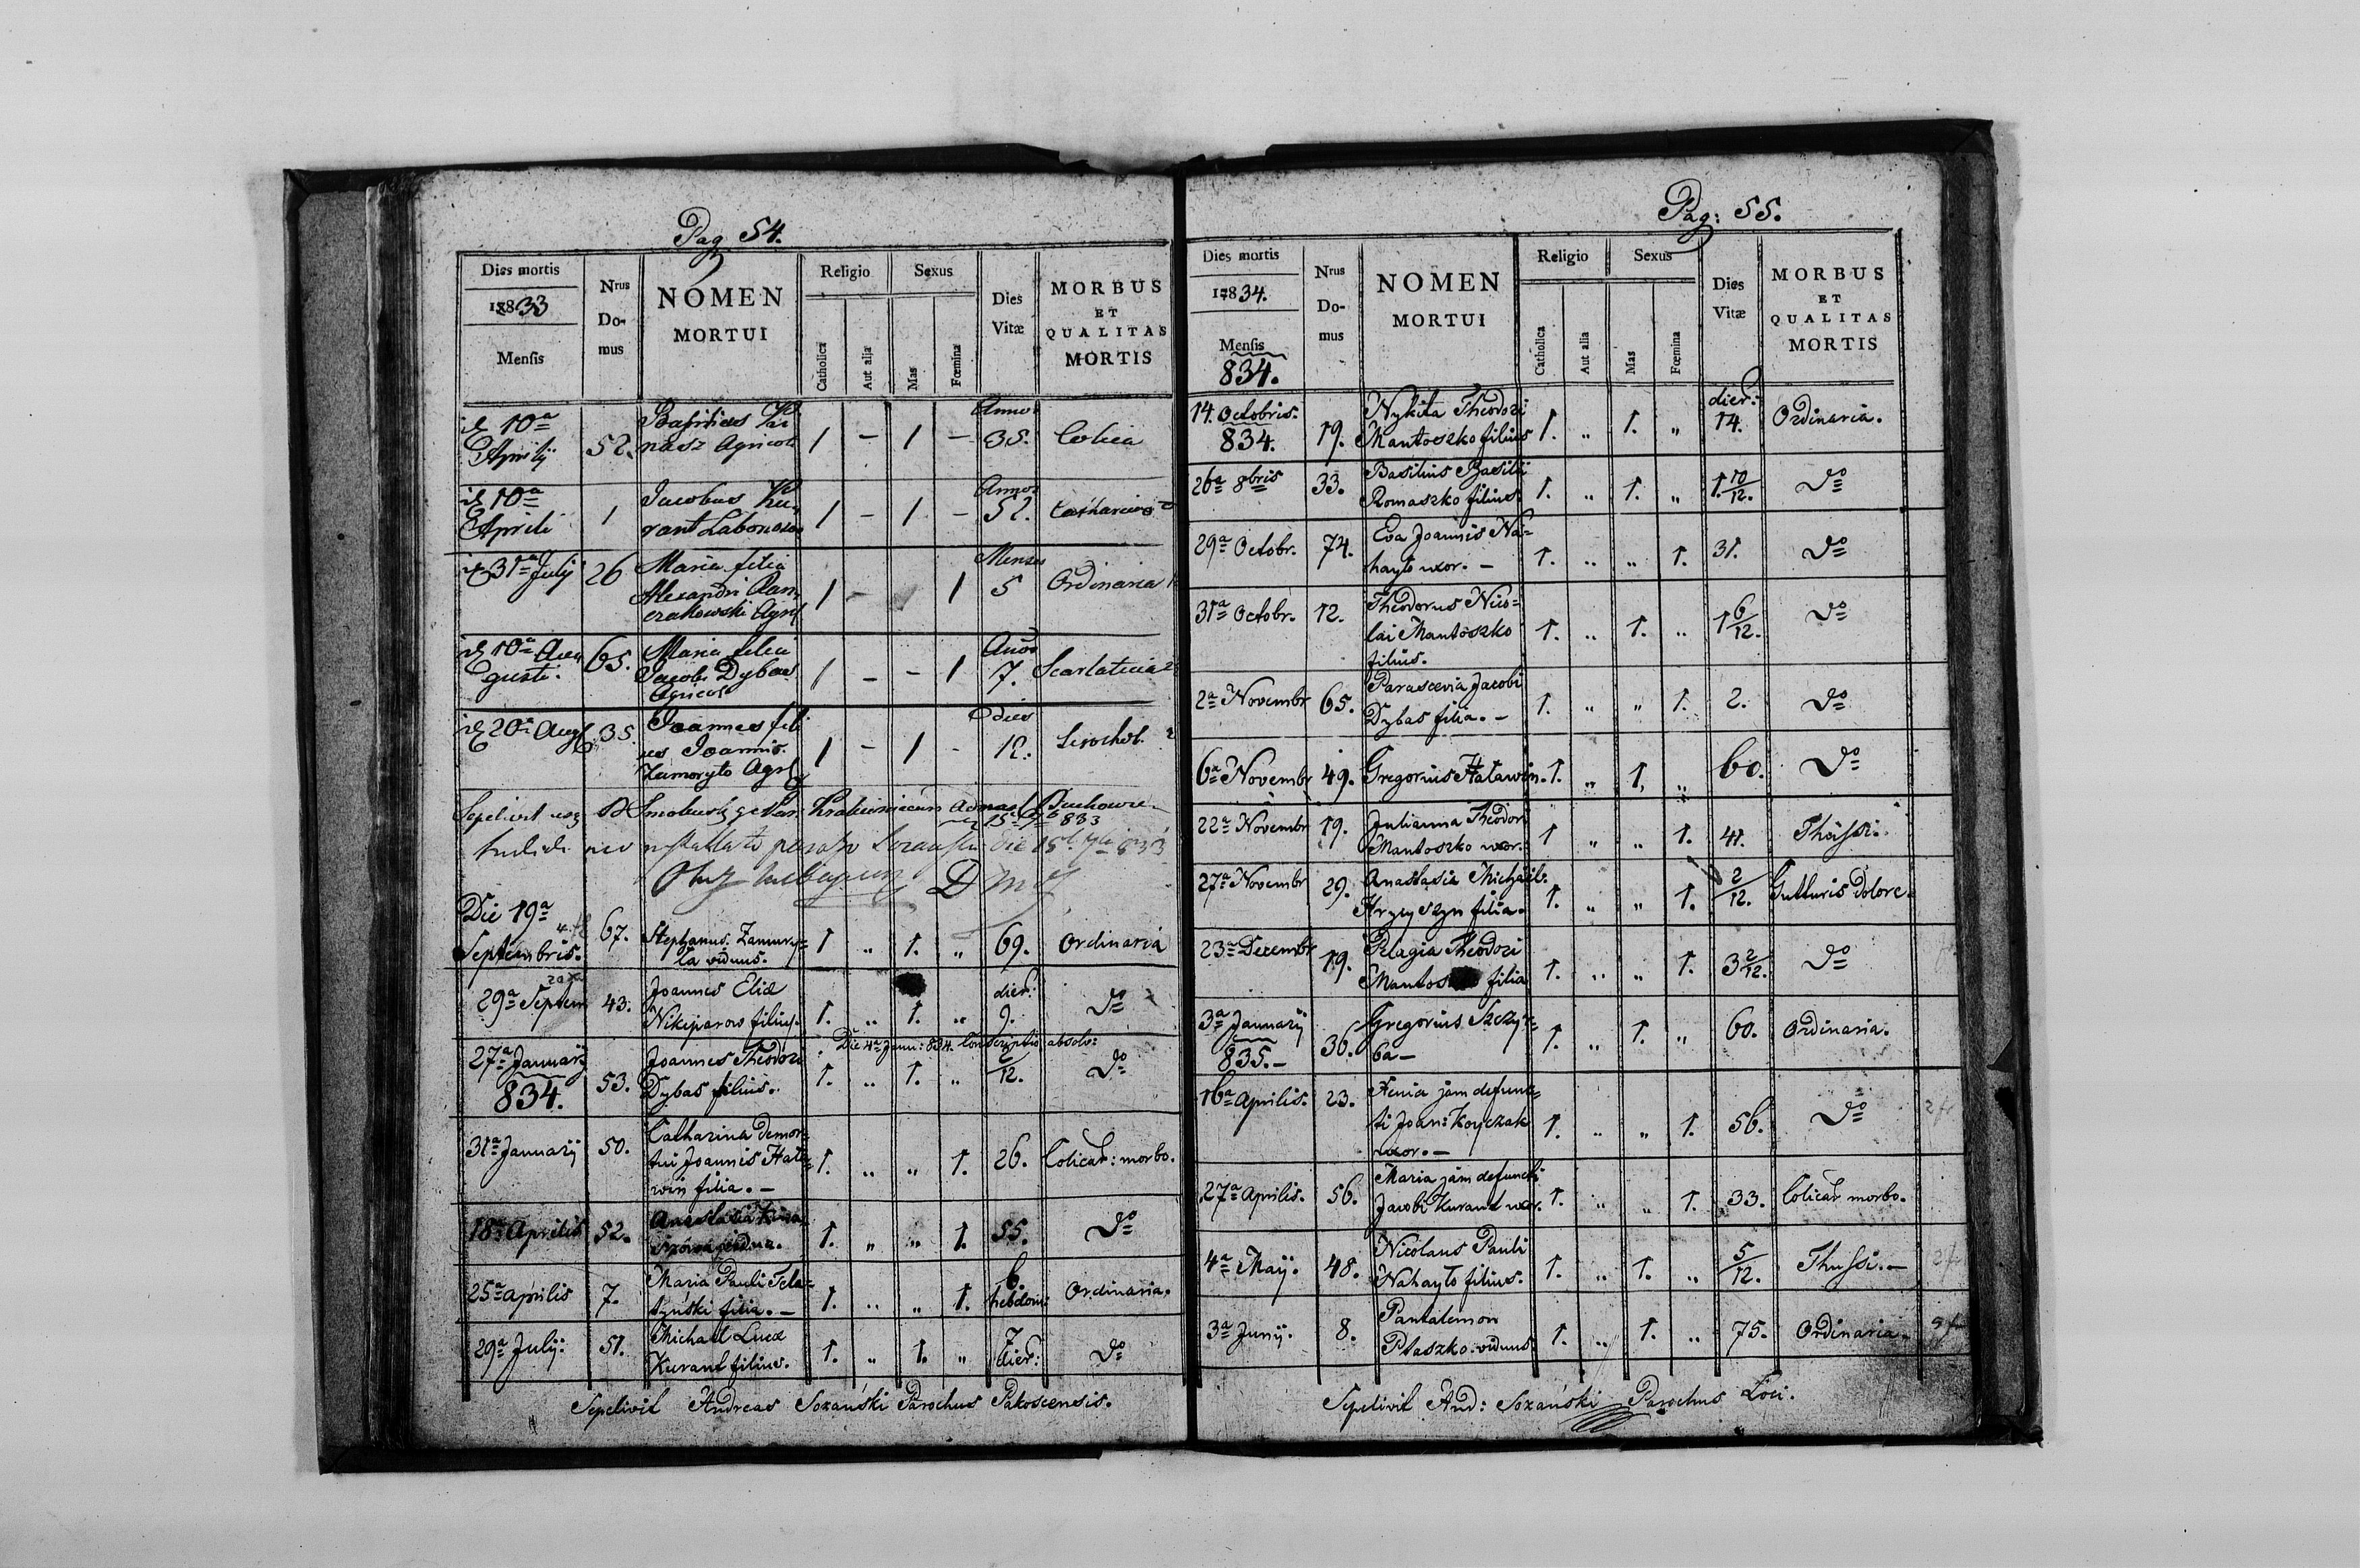 Pag 54.
Dies mortis
1833
Mensis
Nrus Do-mus
NOMEN MORTUI
Religio
Catholica
Aut alia
Sexus
Mas
Fœmina
Dies Vitæ
MORBUS ET QUALITAS MORTIS
10a Aprilij 52. nasz Agricola 1 – 1 – Annos 35. Colica
10a Aprili 1 Jacobus Ku-
rant Laboriosus 1 – 1 – Annos 52.
31a Julij 26 Maria filia
Alexandri
Agrl 1 – 1 Menses 5 Ordinaria
10a Au-
gusti. 65. Maria filia
Jacobi Dybas
Agricol 1 – – 1 Anno 7. Scarlatina
20a Aug 35. Joannes fili
us Joannis
Zamoryto Agrl 1 – 1 - dies 12.
Sepelivit
15a 833
Die 19a
Septembris. 67. Stephanus Zamury-
ła viduus. 1 „ 1. „ 69. Ordinaria
29a Septem 43. Joannes Eliæ
Nikiparow filius. 1. „ 1. „ dier: 9. do
Die 4a Janu: 834. Conscriptio absolv:
27a Januarij
834. 53. Joannes Theodori
Dybas filius. 1. „ 1. „ /12. do
31a Januarij 50. Catharina demor-
tui Joannis Hała-
win filia. – 1. „ „ 1. 26. Colicar: morbo.
18a Aprilis 52. Anastasia
vidua. 1. „ „ 1. 55. do
25a aprilis 7. Maria Pauli Tela-
szyński filia. – 1. „ „ 1. 6. hebdom: Ordinaria.
29a Julij: 51. Michael Lucæ
Kurant filius. 1. „ 1. „ 7 dier: do
Sepelivit Andreas Sozański Parochus Pakoscensis.
Pag: 55.
Dies mortis
1834.
Mensis
834.
Nrus Do-mus
NOMEN MORTUI
Religio
Catholica
Aut alia
Sexus
Mas
Fœmina
Dies Vitæ
MORBUS ET QUALITAS MORTIS
14. Octobris.
834. 19. Nykita Theodori
Mantoszko filius 1. „ 1. „ dier: 14. Ordinaria.
26a 8bris 33. Basilius Basilii
Romaszko filius 1. „ 1. „ 1 10/12. do
29a Octobr. 74. Eva Joannis Na-
hayło uxor. – 1. „ „ 1. 31. do
31a Octobr. 12. Theodorus Nico-
lai Mantoszko
filius. 1. „ 1. „ 1 6/12. do
2a Novembr 65. Parascevia Jacobi
Dybas filia. – 1. „ „ 1. 2. do
6a Novembr 49. Gregorius Haławin. 1. „ 1. „ 60. do
22a Novembr 19. Julianna Theodori
Mantoszko uxor. 1 „ „ 1. 41. Thussi.
27a Novembr 29. Anastasia Michael.
Hrycyszyn filia. 1. „ „ 1. 2/12. Gutturis dolore.
23a Decembr 19. Pelagia Theodori
filia 1. „ „ 1. 3 2/12. do
3a Januarij
835.– 36. Gregorius Szczyr-
ba – 1. „ 1. „ 60. Ordinaria.
16a Aprilis. 23. Xenia jam defunc-
ti Joan: Korczak
uxor. – 1. „ „ 1. 56. do
27a Aprilis. 56. Maria jam defuncti
Jacobi Kurant uxor. 1. „ „ 1. 33. Colicar morbo.
4a Maij. 48. Nicolaus Pauli
Nahayło filius. 1. „ 1. „ 5/12. Thussi. –
3a Junij. 8. Pantalemon
Ptaszko viduus 1. „ 1. „ 75. Ordinaria
Sepelivit And: Sozański Parochus Loci.